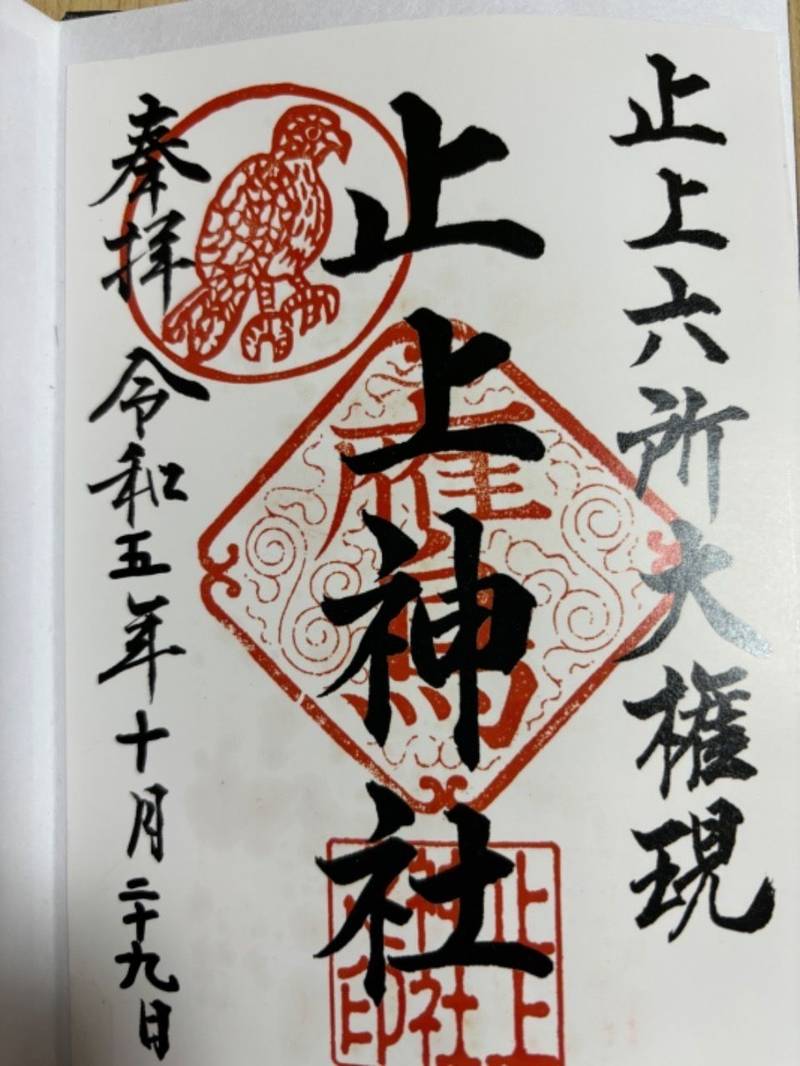 止上六所大権現
止上神社
奉拝 令和五年十月二十九日
止上
神社
之印